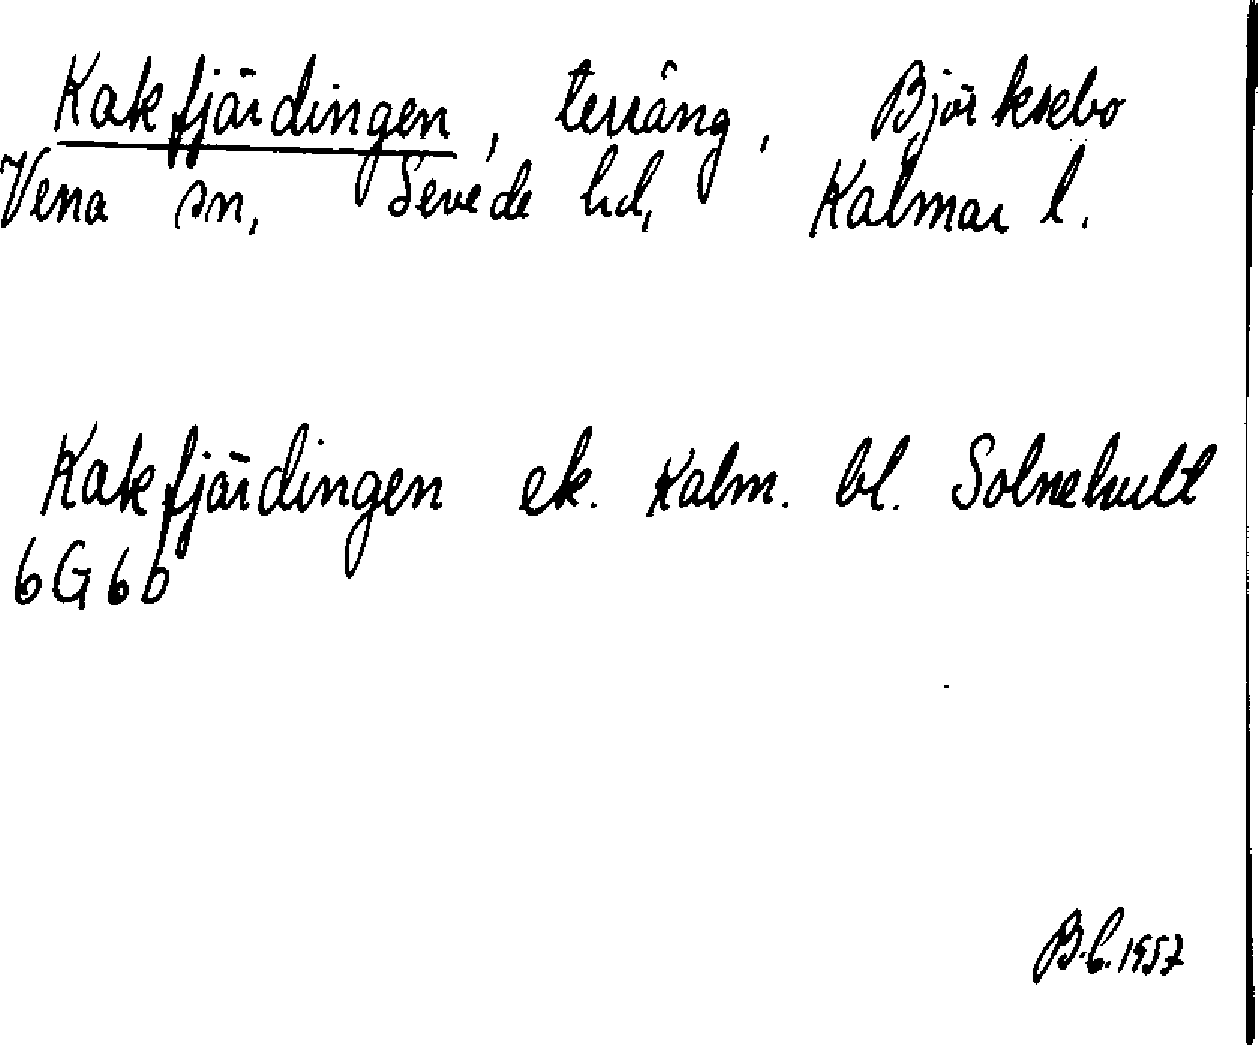 Kakfjärdingen, terräng, Björksebo
Vena sn, Sevede hd, Kalmar l.
Kakfjärdingen ek. Kalm. bl. Solnehult
6G6b
B.b. 1957